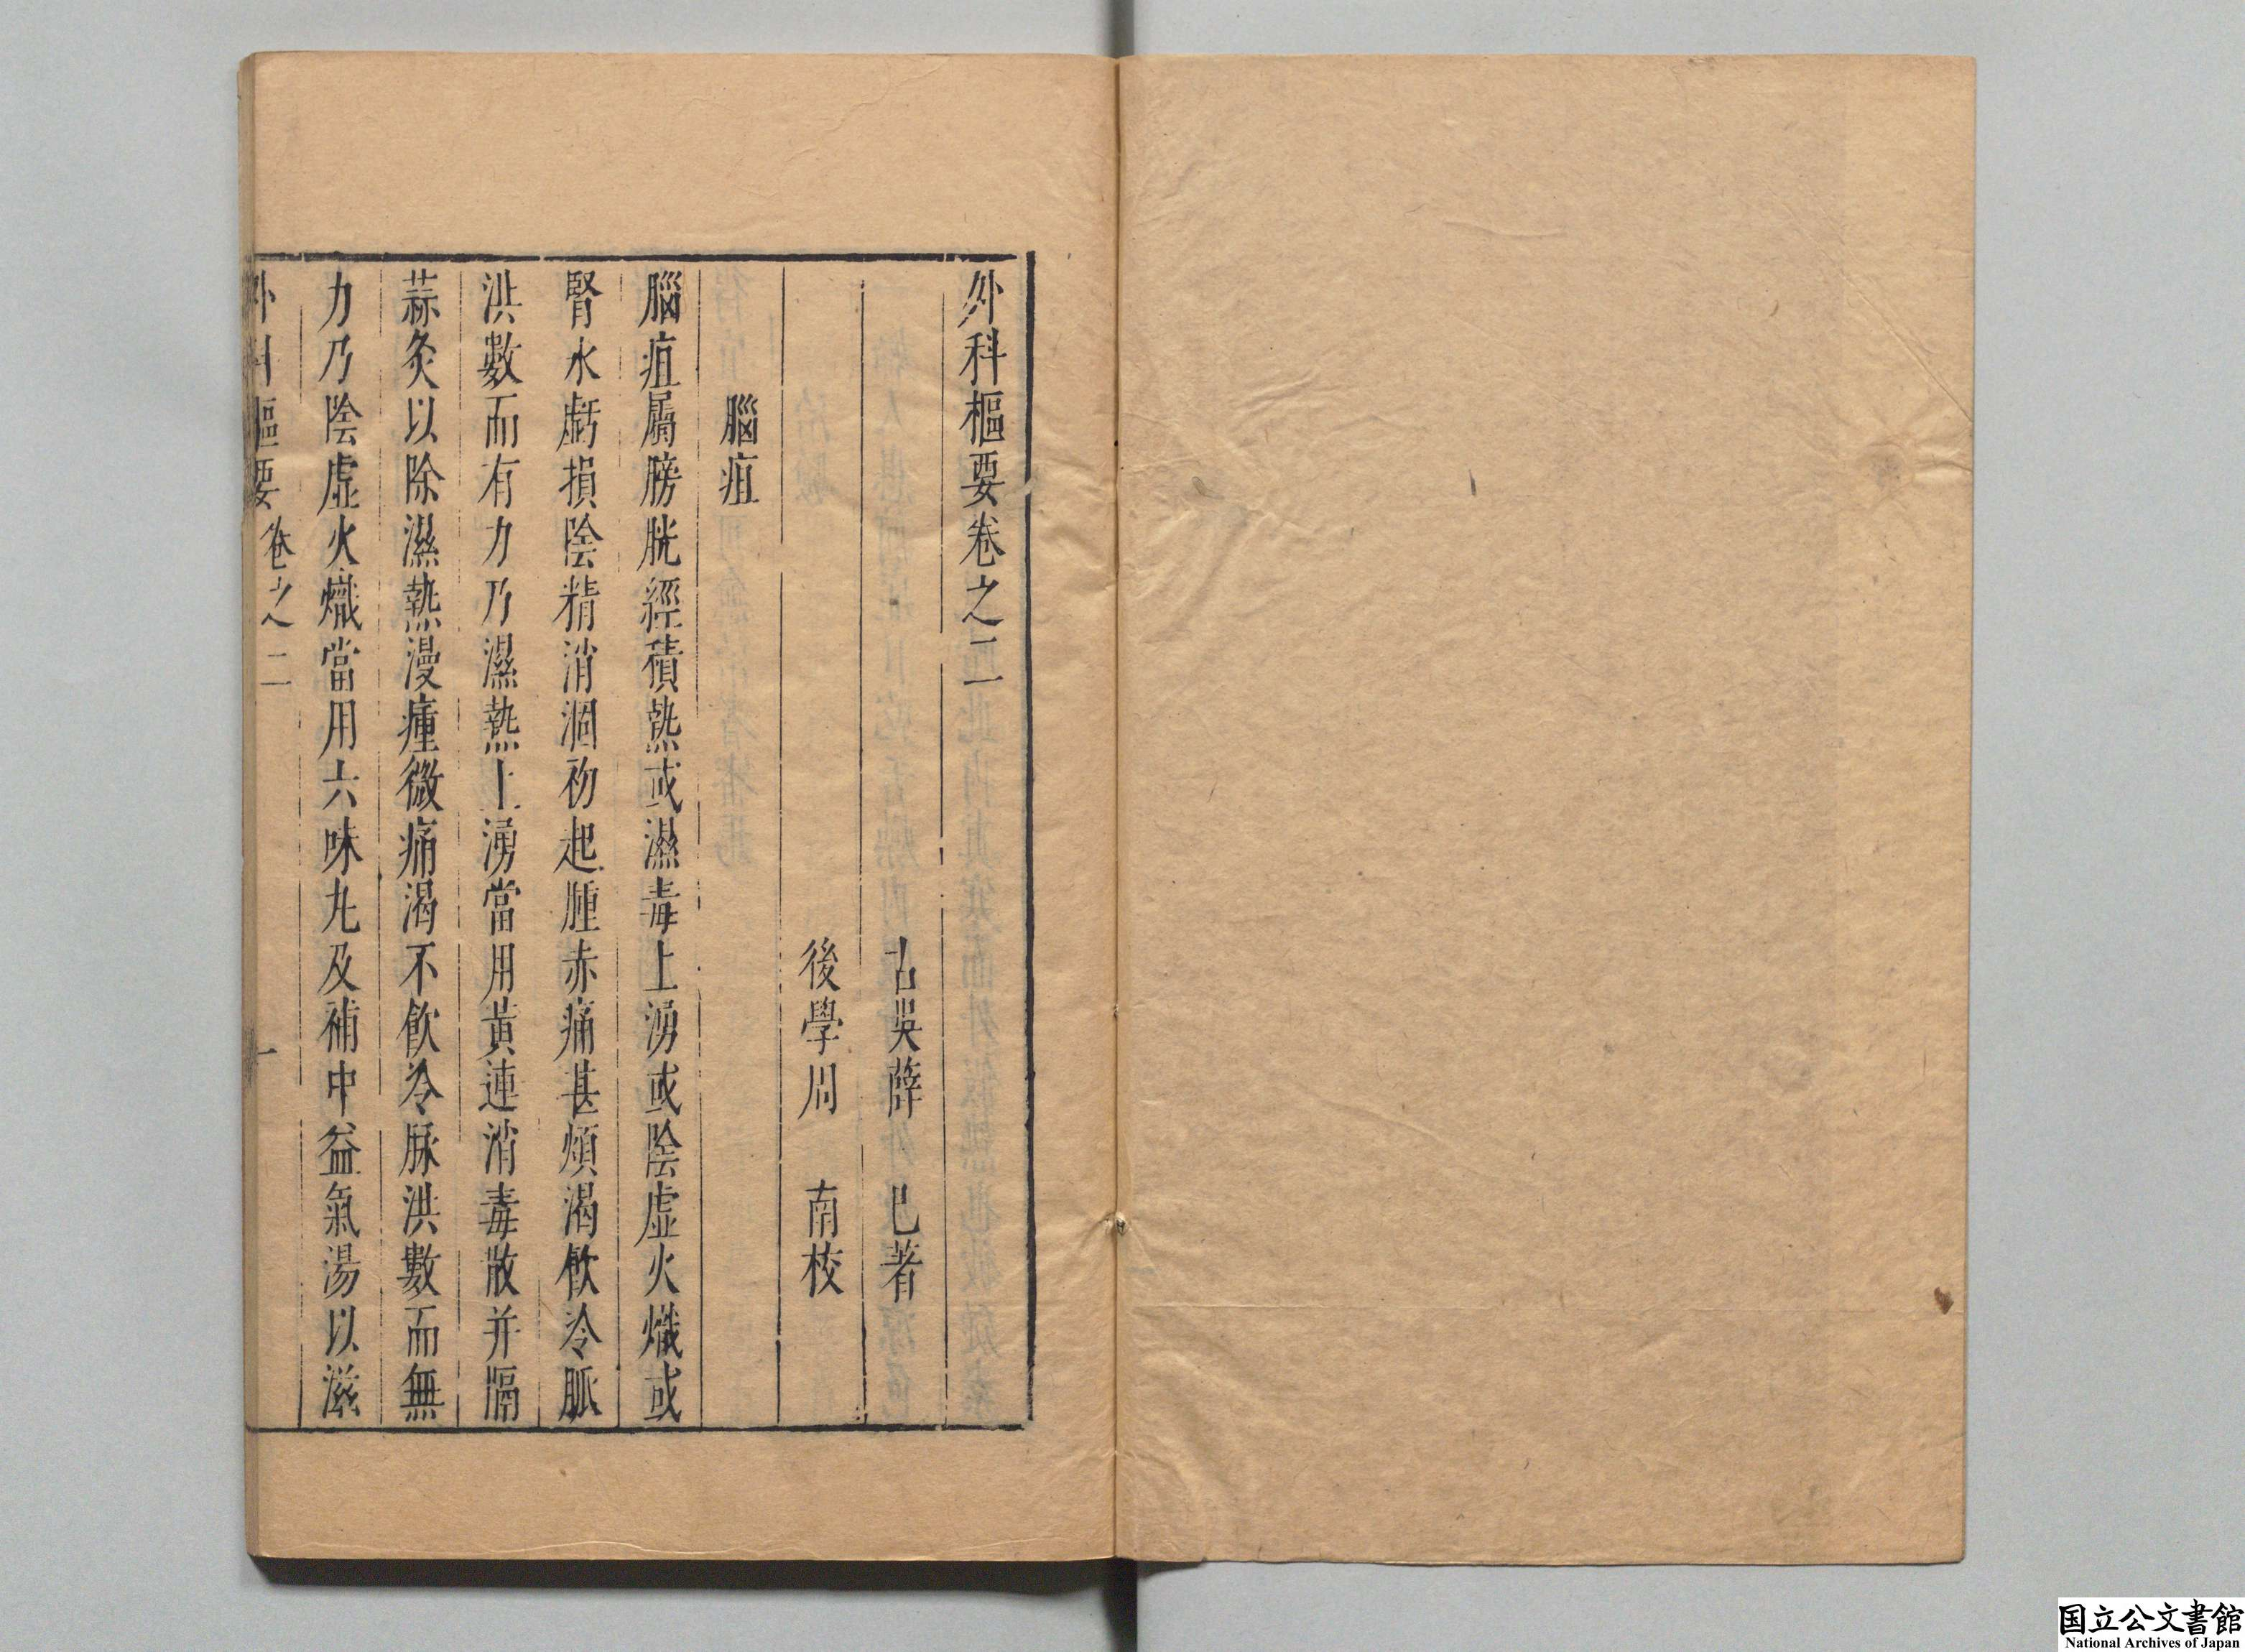 外科樞要卷之二
古吳薛 已著
後學周 南校
腦疽
腦疽屬膀胱經積熱或濕毒上湧或陰虛火熾或
腎水虧損陰精消涸初起腫赤痛甚煩渴飲冷脈
洪數而有力乃濕熱上湧當用黃連消毒散并隔
蒜灸以除濕熱漫瘇微痛渴不飲冷脉洪數而無
力乃陰虛火熾當用六味丸及補中益氣湯以滋
外科樞要 卷之二 一
国立公文書館
National Archives of Japan